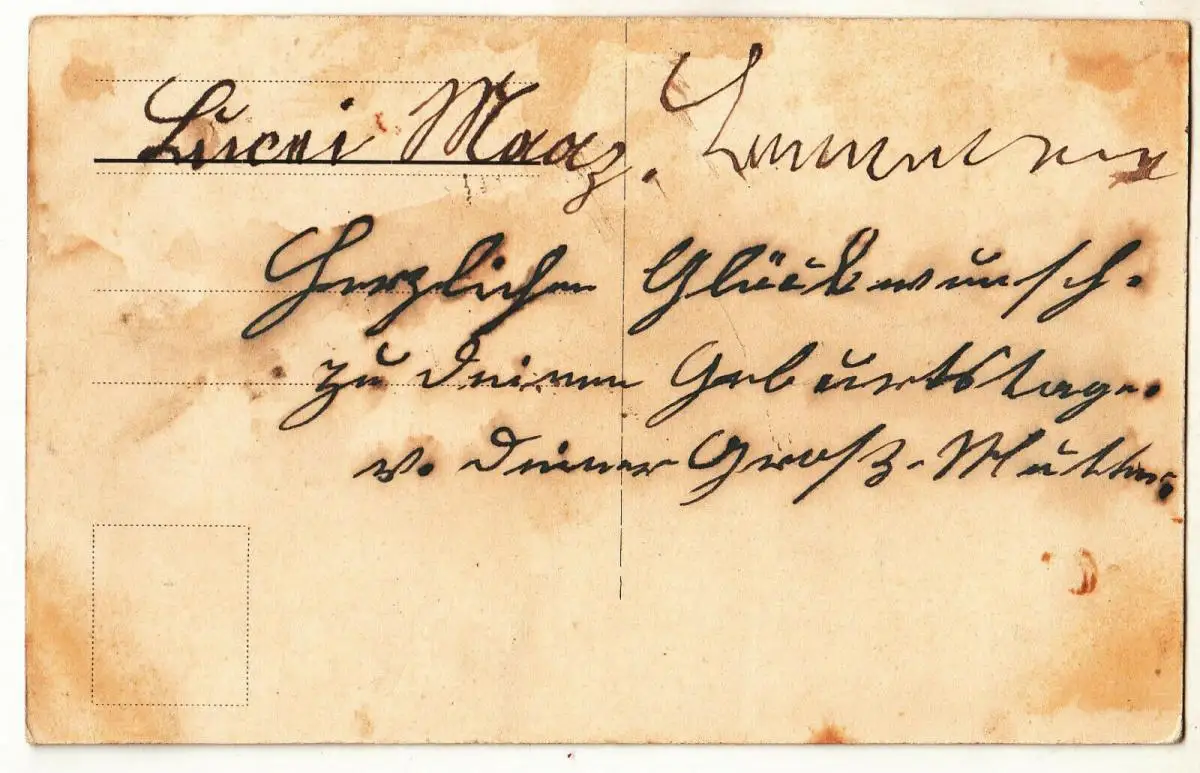 Lucei Maaz.
Herzlichen Glückwunsch.
zu deinen Geburtstage.
v. deiner Grosz-Mutter.